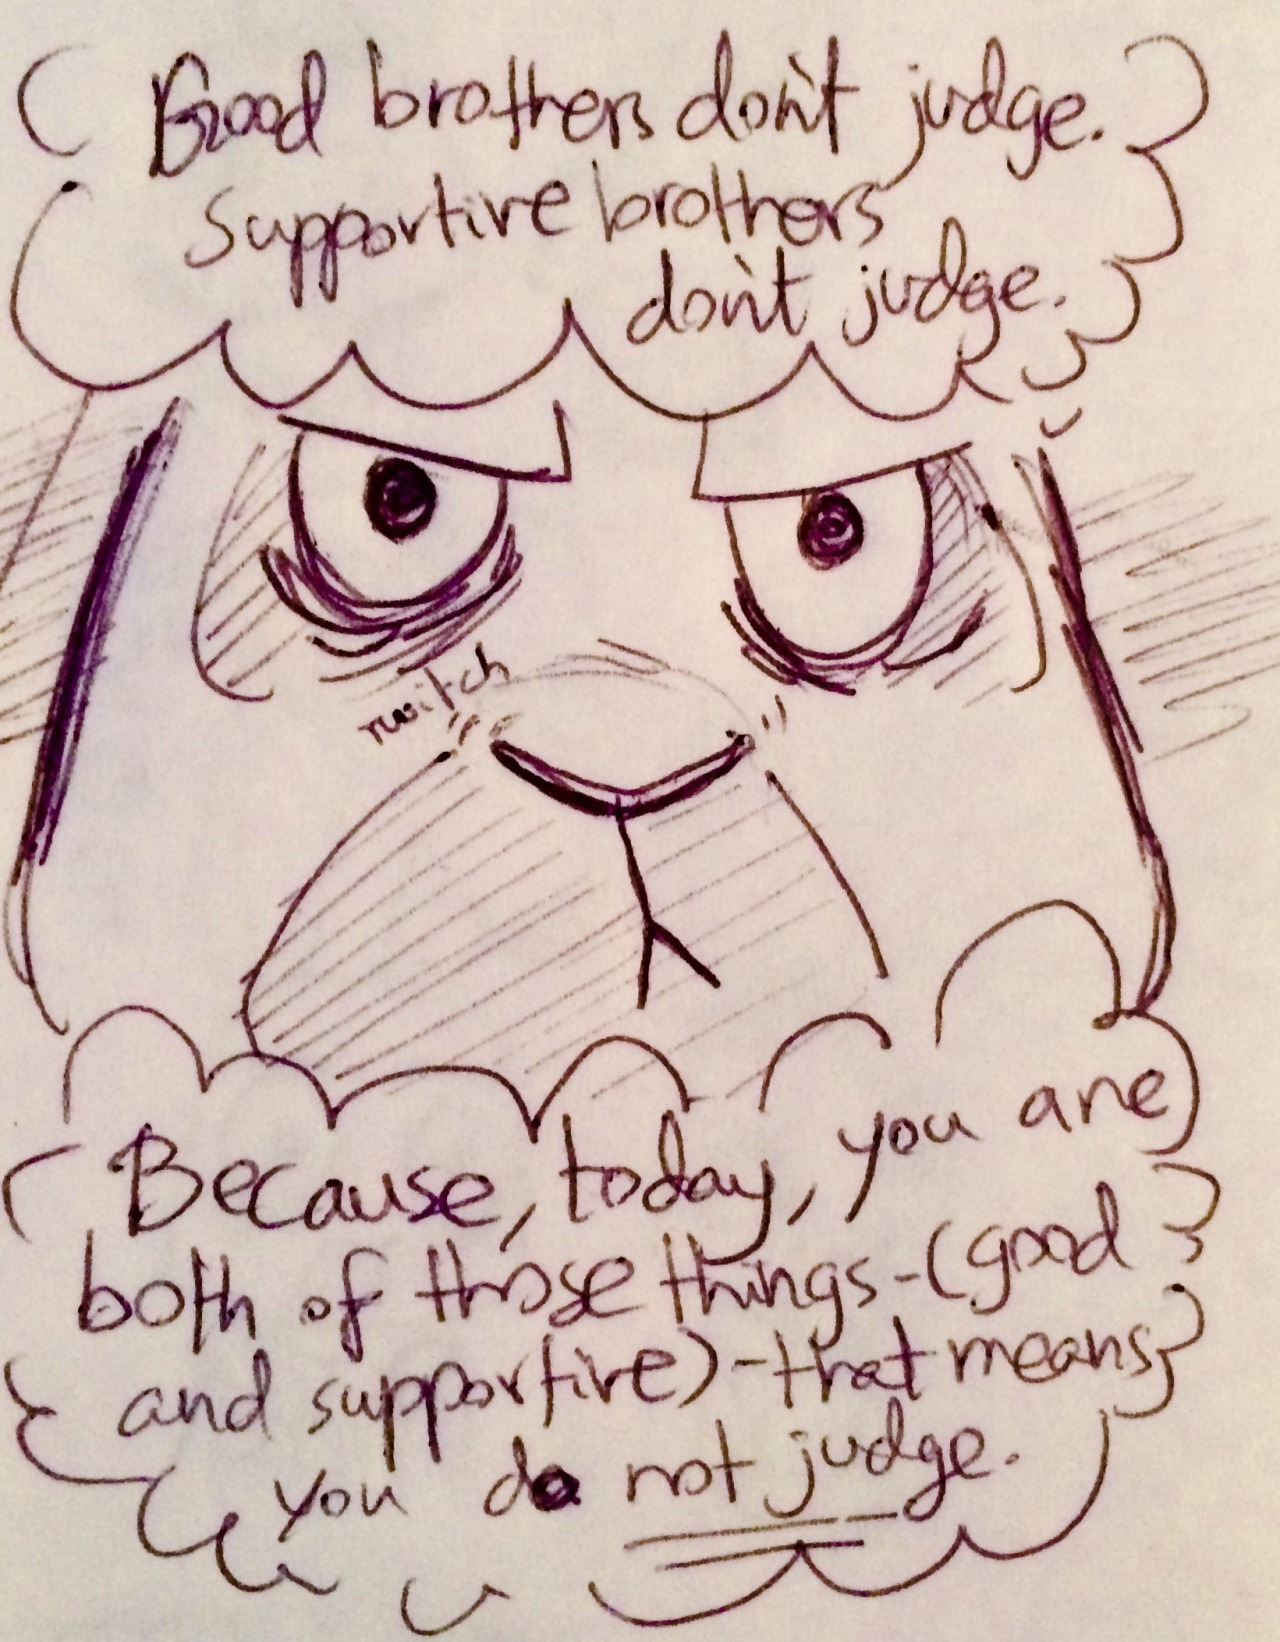 Good brothers don't judge.
Supportive brothers
don't judge.
twitch
Because, today, you are
both of those things-(good
and supportive)-that means
you do not judge.